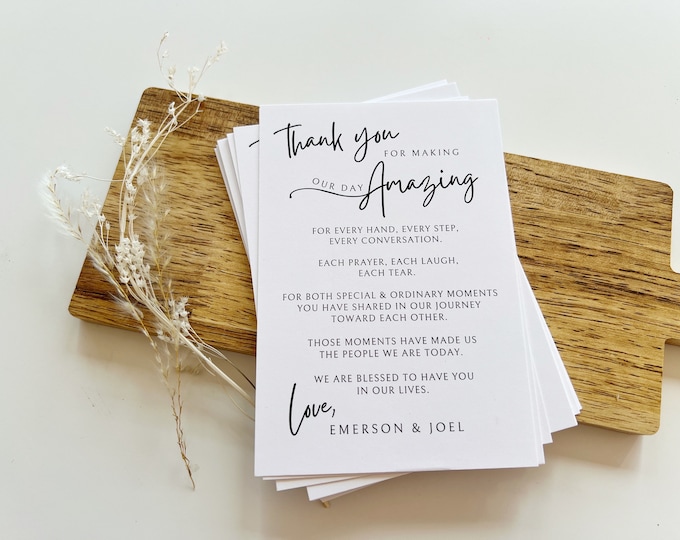 Thank you
FOR MAKING
OUR DAY Amazing
FOR EVERY HAND, EVERY STEP,
EVERY CONVERSATION.
EACH PRAYER, EACH LAUGH,
EACH TEAR.
FOR BOTH SPECIAL & ORDINARY MOMENTS
YOU HAVE SHARED IN OUR JOURNEY
TOWARD EACH OTHER.
THOSE MOMENTS HAVE MADE US
THE PEOPLE WE ARE TODAY.
WE ARE BLESSED TO HAVE YOU
IN OUR LIVES.
Love,
EMERSON & JOEL